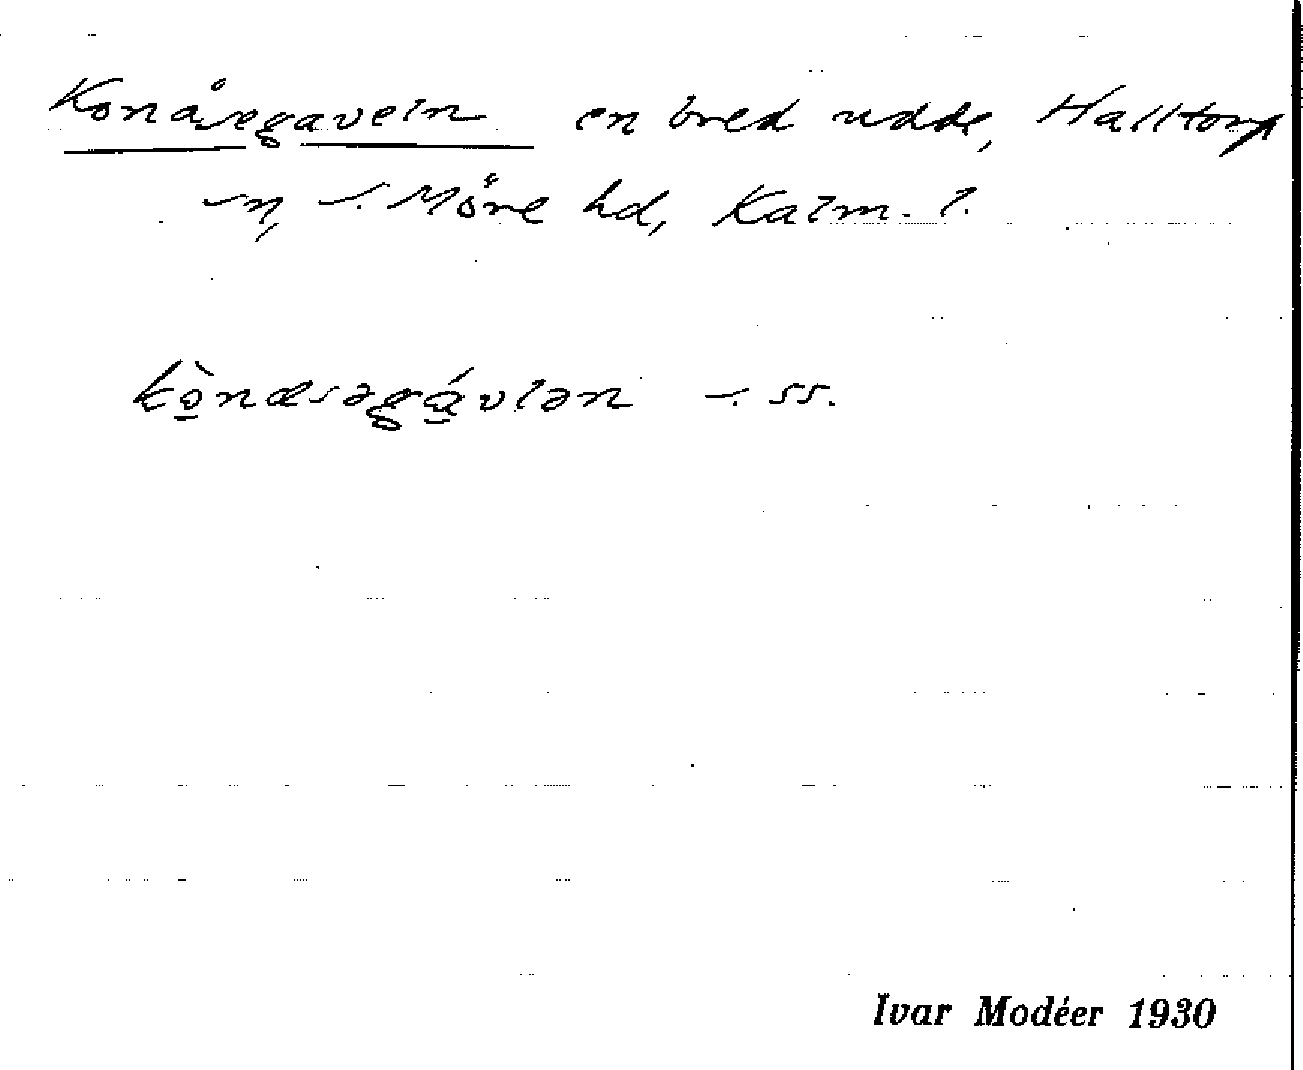 Konåsegaveln en bred udde, Halltorp
sn, s. Möre hd, Kalm. l.
kò̠næsəgá̠vlən s. ss.
Ivar Modéer 1930